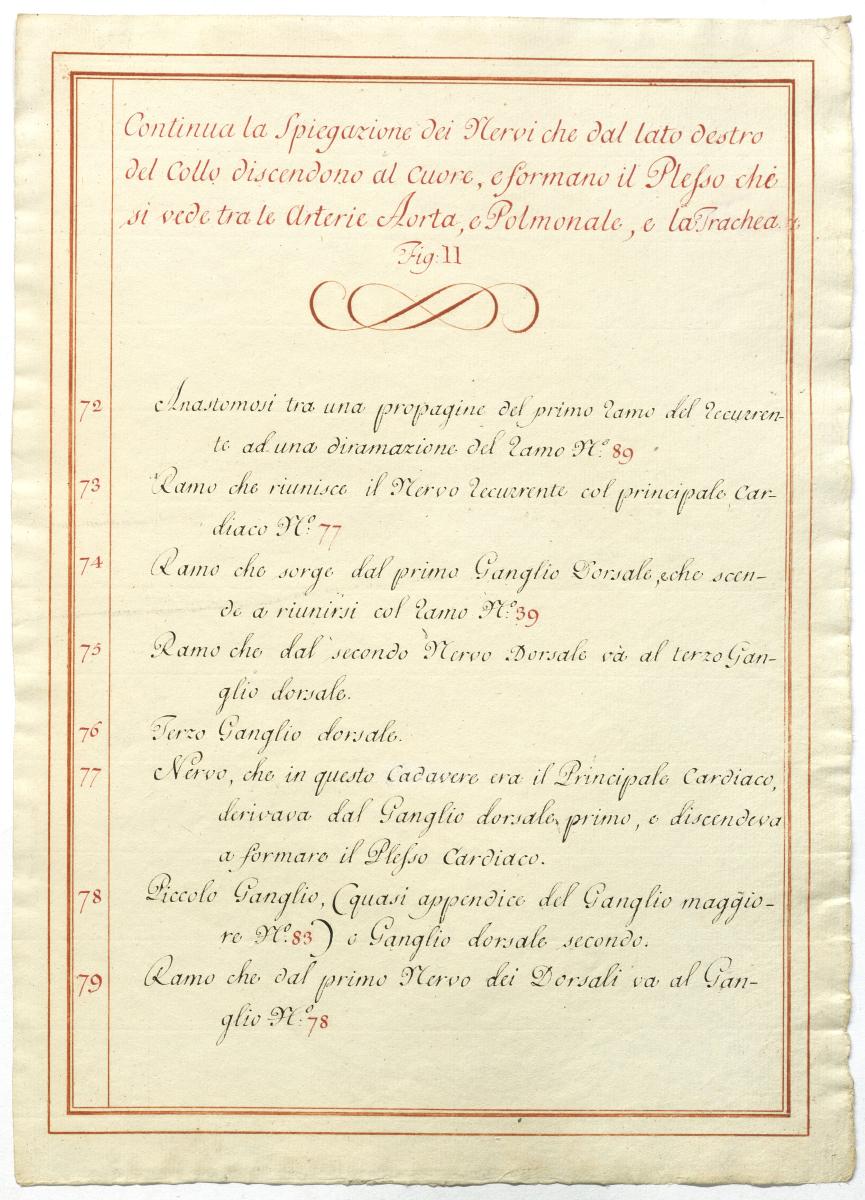 Continua la Spiegazione dei Nervi che dal lato destro
del Collo discendono al Cuore, e formano il Plesso che
si vede tra le Arterie Aorta, e Polmonale, e la Trachea.
Fig: 11
72 Anastomosi tra una propagine del primo ramo del recurren-
te ad una diramazione del ramo N.º 89
73 Ramo che riunisce il Nervo recurrente col principale Car-
diaco N.º 77
74 Ramo che sorge dal primo Ganglio Dorsale, che scen-
de a riunirsi col ramo N.º 39
75 Ramo che dal secondo Nervo Dorsale và al terzo Gan-
glio dorsale.
76 Terzo Ganglio dorsale.
77 Nervo, che in questo Cadavere era il Principale Cardiaco,
derivava dal Ganglio dorsale primo, e discendeva
a formare il Plesso Cardiaco.
78 Piccolo Ganglio, (quasi appendice del Ganglio maggio-
re N.º 83) e Ganglio dorsale secondo.
79 Ramo che dal primo Nervo dei Dorsali va al Gan-
glio N.º 78